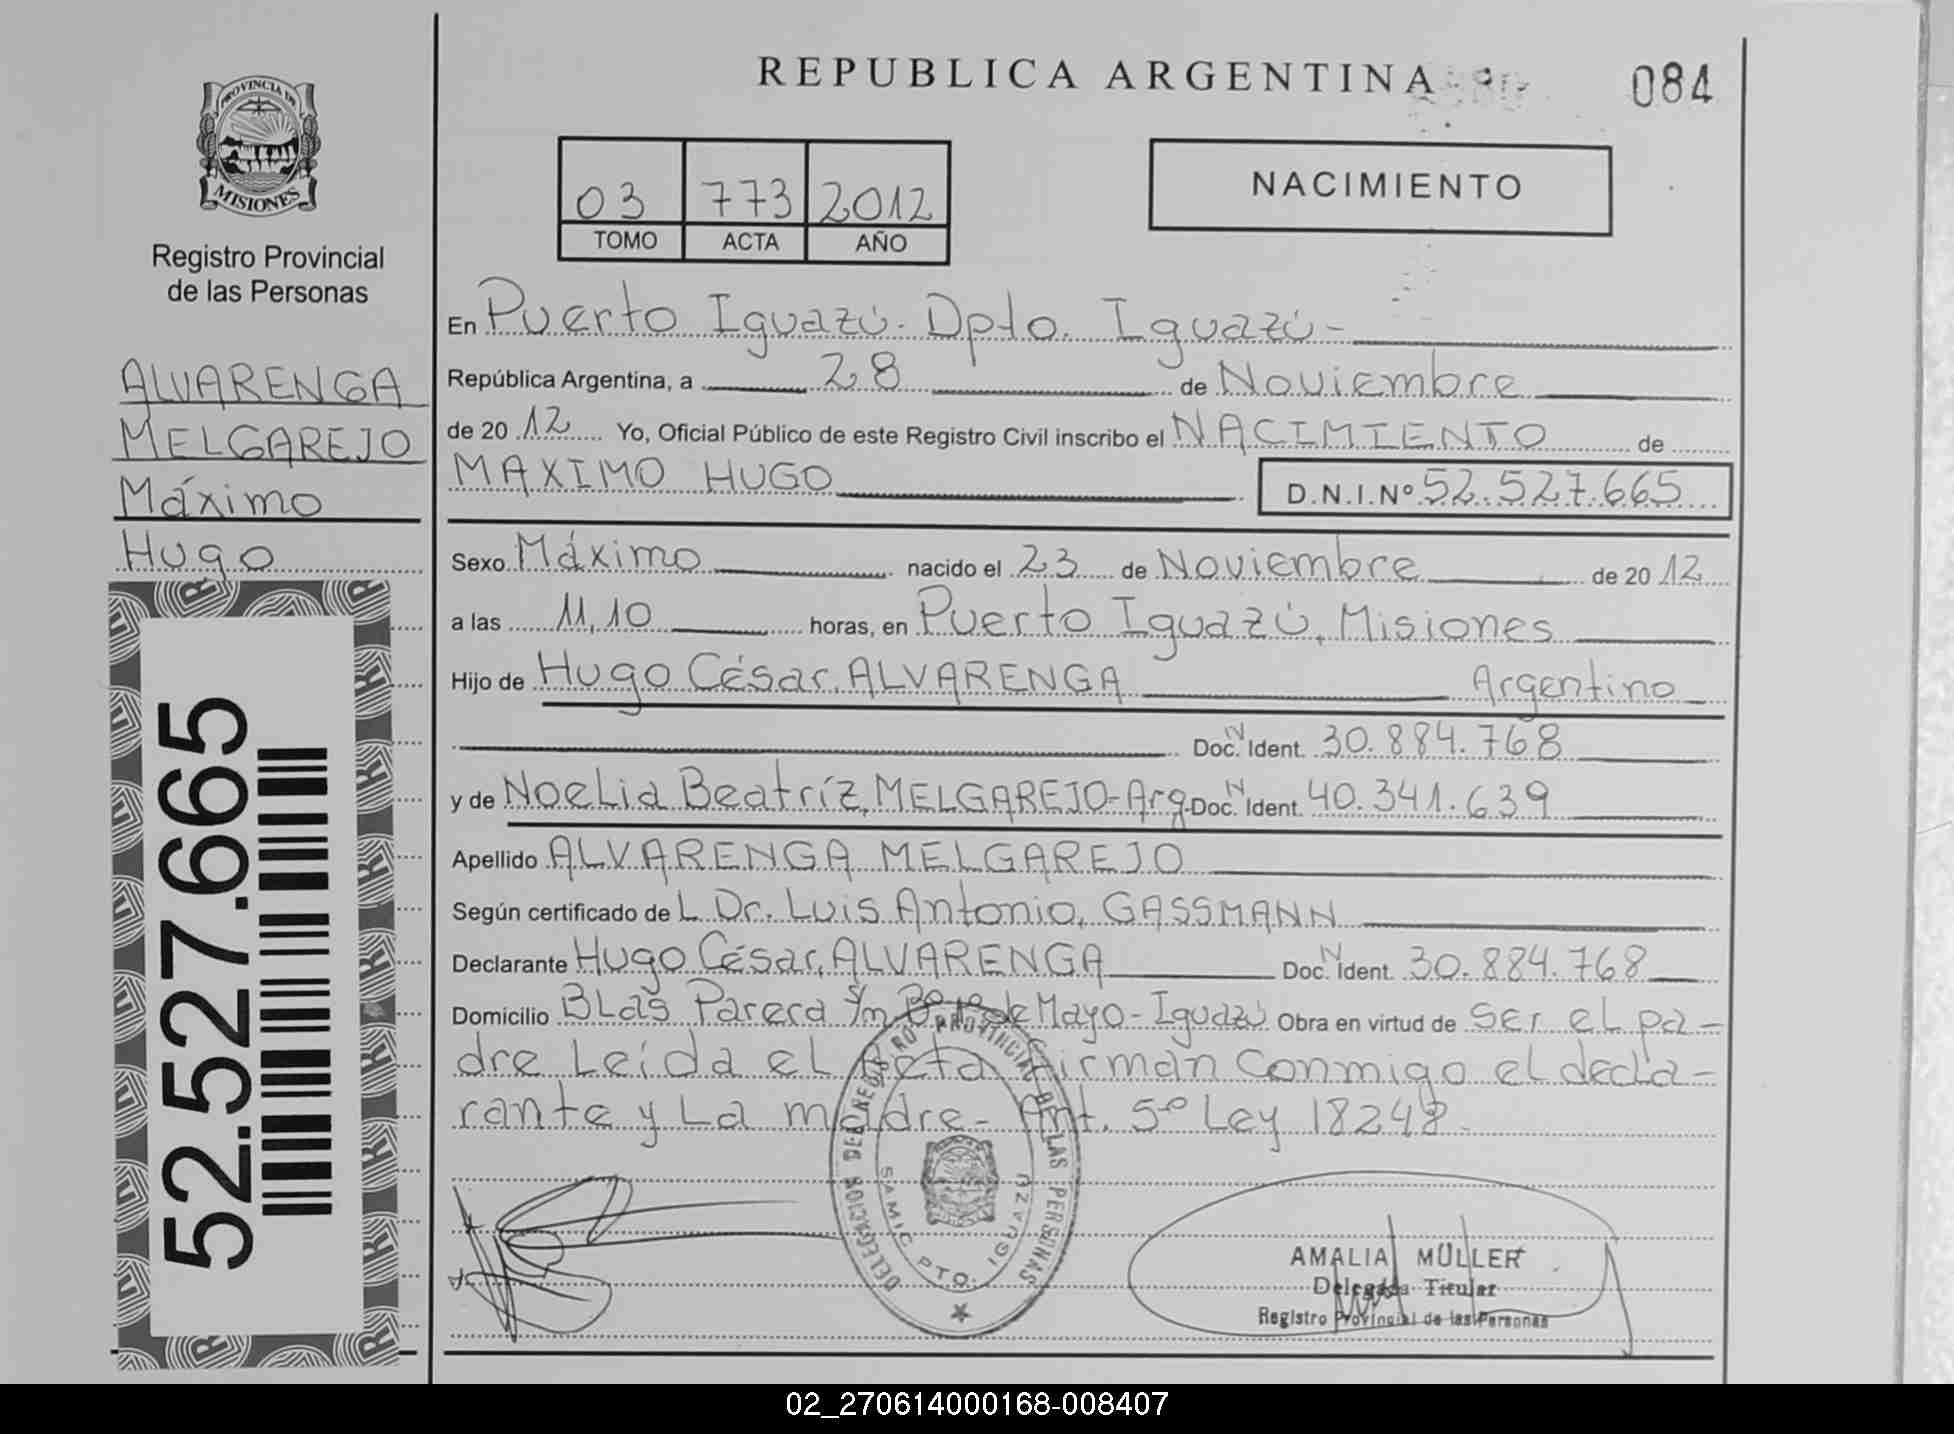 PROVINCIA DE
MISIONES
Registro Provincial
de las Personas
ALVARENGA
MELGAREJO
Máximo
Hugo
52.527.665
REPUBLICA ARGENTINA
084
03 773 2012
TOMO ACTA AÑO
NACIMIENTO
En Puerto Iguazú. Dpto. Iguazú-
República Argentina, a 28 de Noviembre
de 2012 Yo, Oficial Público de este Registro Civil inscribo el NACIMIENTO de
MAXIMO HUGO D.N.I.Nº 52.527.665
Sexo Máximo nacido el 23 de Noviembre de 2012
a las 11,10 horas, en Puerto Iguazú, Misiones
Hijo de Hugo César, ALVARENGA Argentino
Doc. N Ident. 30.884.768
y de Noelia Beatríz, MELGAREJO-Arg. Doc. N Ident. 40.341.639
Apellido ALVARENGA MELGAREJO
Según certificado del Dr. Luis Antonio, GASSMANN
Declarante Hugo César, ALVARENGA Doc. N Ident. 30.884.768
Domicilio Blas Parera s/n Bº 1º de Mayo-Iguazú Obra en virtud de ser el pa-
dre Leída el Acta firman conmigo el decla-
rante y La madre- Art. 5º Ley 18248.
DELEGACION DEL REGISTRO PROVINCIAL DE LAS PERSONAS
SAMIC PTO. IGUAZU
AMALIA MÜLLER
Delegada Titular
Registro Provincial de las Personas
02_270614000168-008407